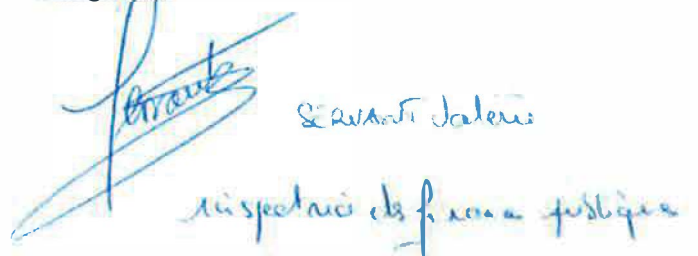 SERVANT Valérie
inspectrice des finances publiques